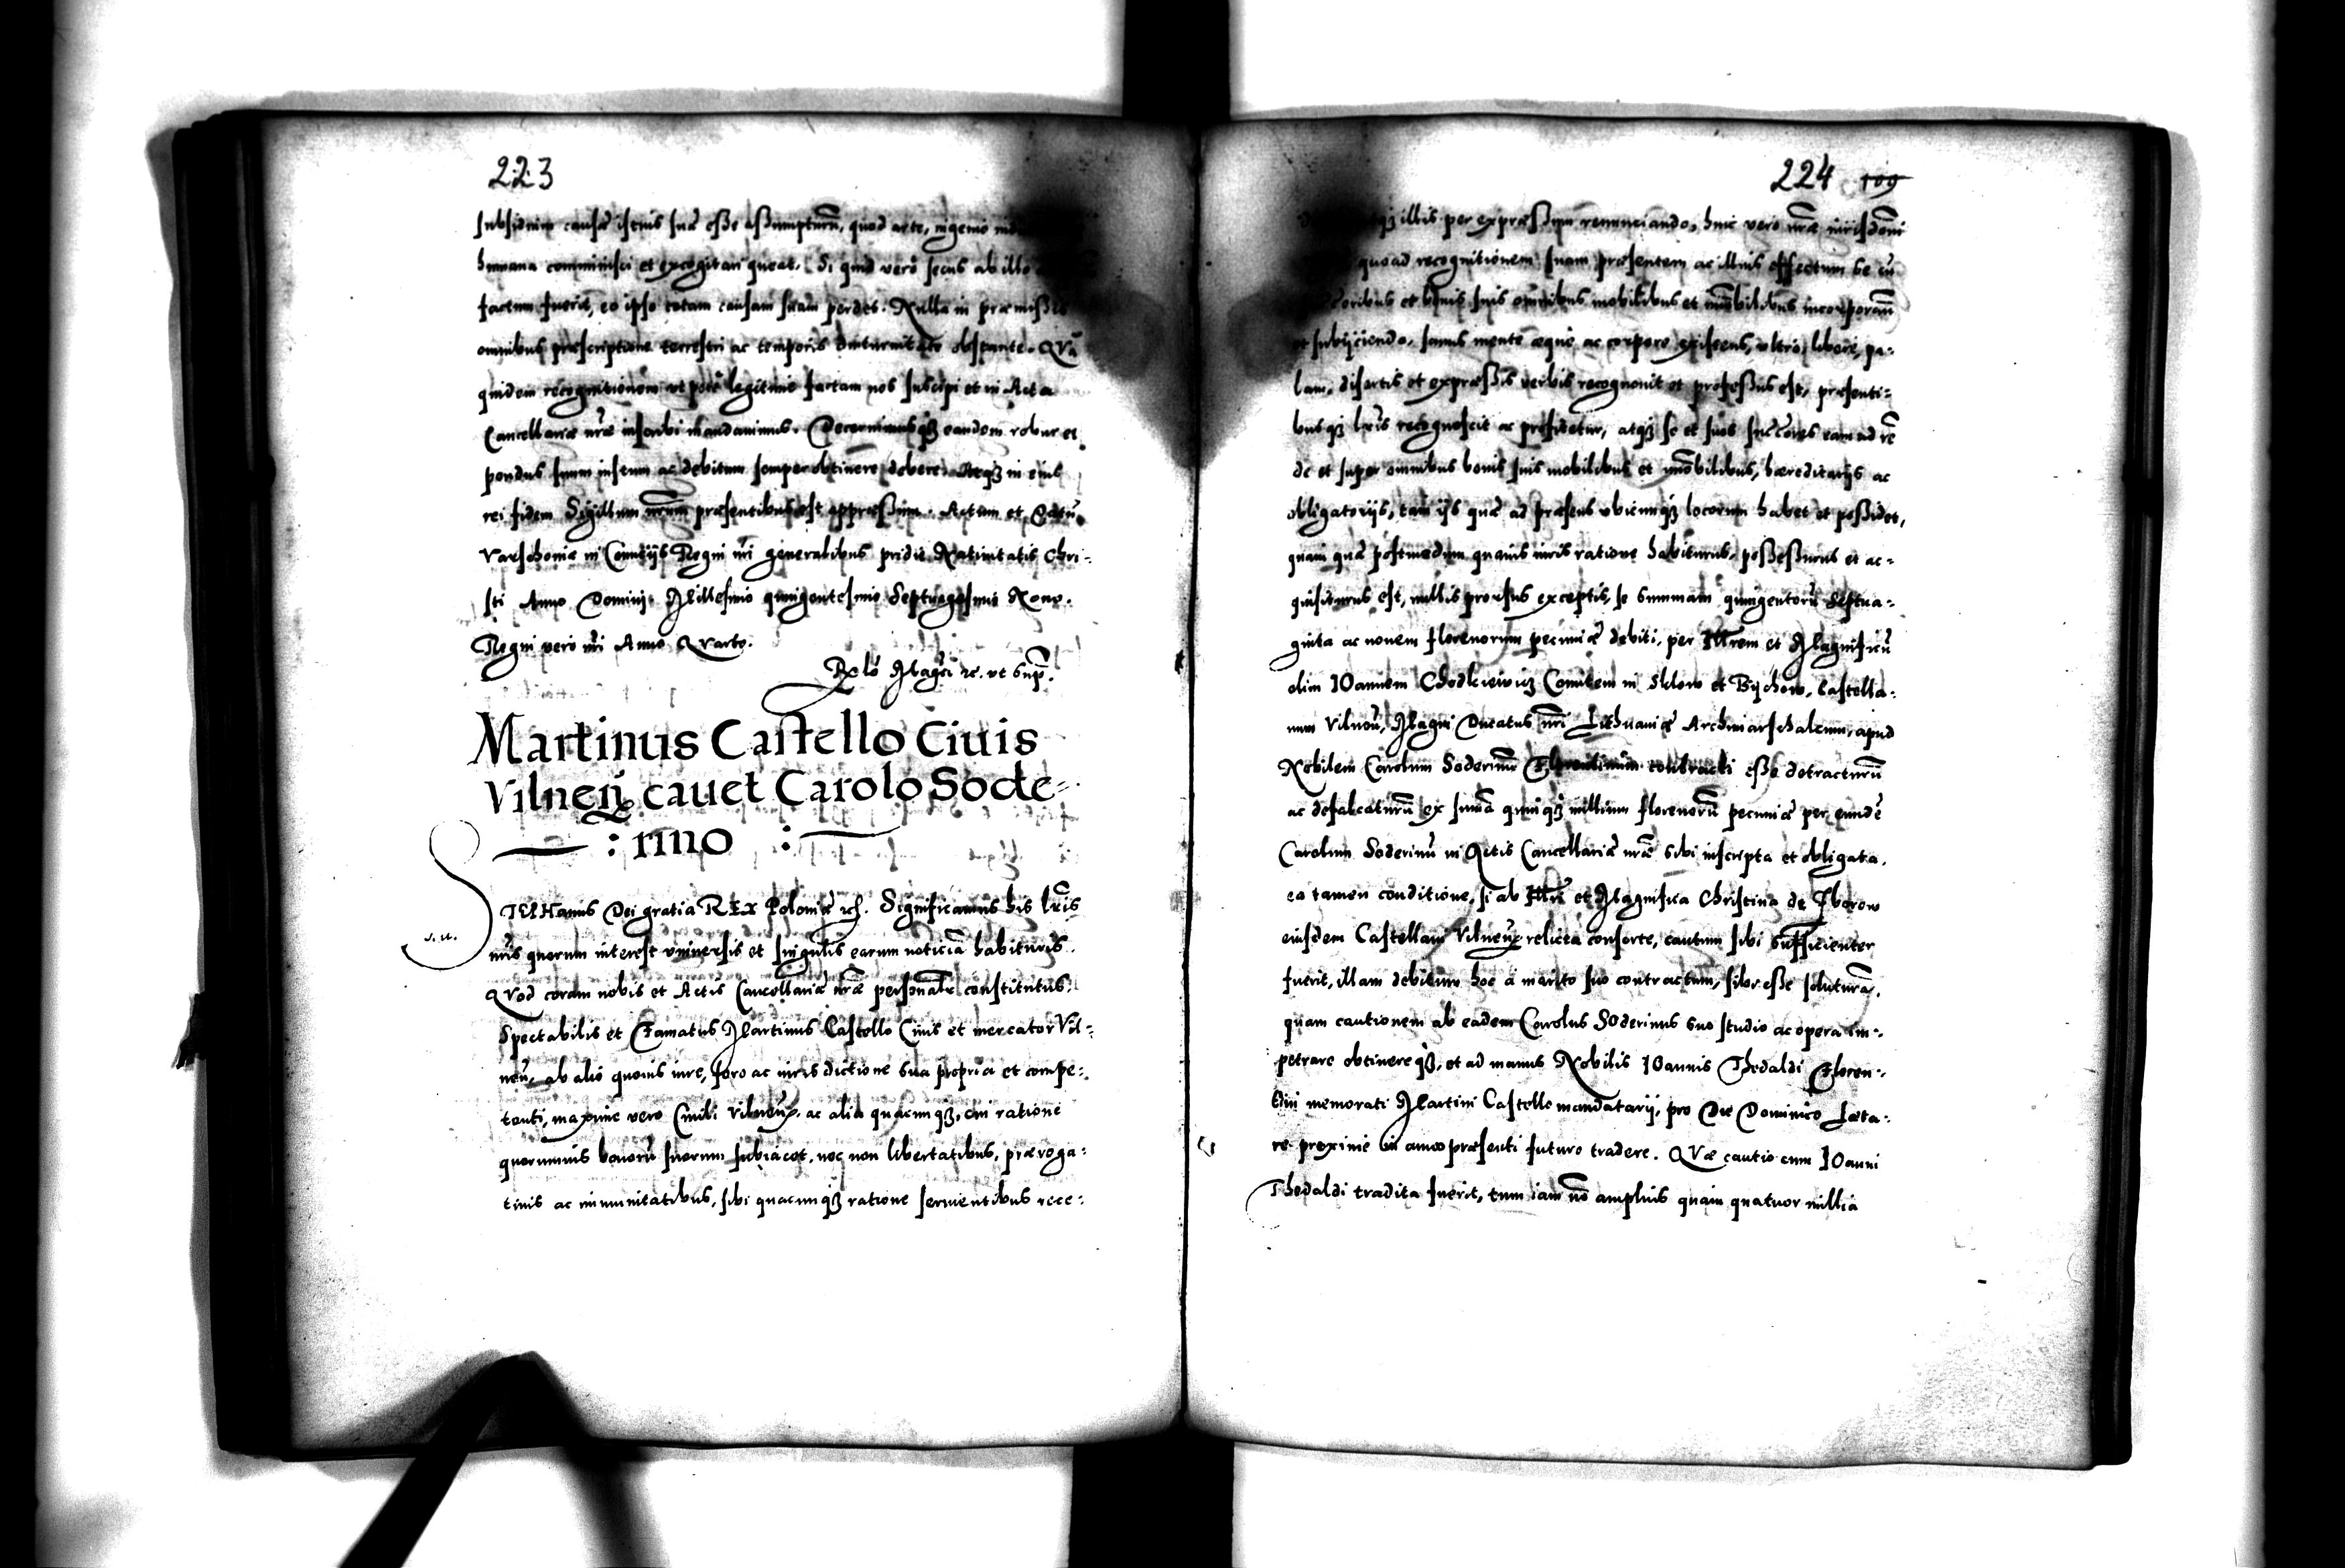 223
subsidium causæ istius suæ esse assumpturū, quod arte, ingenio
humana comminisci et excogitari queat. Si quid vero secus ab illo
factum fuerit, eo ipso totam causam suam perdet. Nulla in præmissis
omnibus præscriptione terrestri ac temporis diuturnitate obstante. QVā
quidem recognitionem vt pote legitime factam nos suscipi et in Acta
Cancellariæ nr̄æ inscribi mandauimus. Decernimusq3 eandem robur et
pondus suum iustum ac debitum semper obtinere debere. Atq3 in eius
rei fidem Sigillum nr̄um præsentibus est appræssum. Actum et Datū
Varschouiæ in Comitijs Regni nr̄i generalibus pridie Natiuitatis Chri-
sti Anno Domini Millesimo quingentesimo Septuagesimo Nono.
Regni vero nr̄i Anno Quarto.
Rx lō Magci rc. vt Sup.
Martinus Castello Ciuis
Vilneñ cauet Carolo Sode-
: rino :
STEPHanus Dei gratia REX Poloniæ rc. Significamus his lr̄is
nr̄is quorum interest vniuersis et singulis earum noticiā habituris.
QVod coram nobis et Actis Cancellariæ nr̄æ personalr̄ constitutus
Spectabilis et Famatus Martinus Castello Ciuis et mercator Vil-
neñ, ab alio quouis iure, foro ac iurisdictione sua propria et compe-
tenti, maxime vero Ciuili Vilneñ. ac alia quacunq3, cui ratione
quorumuis bonorū suorum subiacet, nec non libertatibus, præroga-
tiuis ac immunitatibus, sibi quacunq3 ratione seruientibus rece-
224 109
illis per expræssum renunciando, huic vero nr̄æ iurisdōni
quoad recognitionem suam præsentem ac illius effectum se cū
et bonis suis omnibus mobilibus et immobilibus incorporan̄
et subijciendo, sanus mente æque ac corpore existens, vltro, libere, pa-
lam, disertis et expræssis verbis recognouit et professus est, præsenti-
busq3 lr̄is recognoscit ac profitetur, atq3 se et suos succōres eam ad rē
de et super omnibus bonis suis mobilibus et immobilibus, hæreditarijs ac
obligatorijs, tam ijs quæ ad præsens vbicunq3 locorum habet et possidet,
quam quæ postmodum quauis iuris ratione habiturus, possessurus et ac-
quisiturus est, nullis prorsus exceptis, se Summam quingentorū Septua-
ginta ac nouem florenorum pecuniæ debiti, per Illrem et Magnificū
olim IOannem Chodkieuicz Comitem in Sklow et Bychow, Castella-
num Vilneñ, Magni Ducatus nr̄i Lithuaniæ Archimarschalcum, apud
Nobilem Carolum Soderinū Florentinum contracti esse detracturū
ac defalcaturū ex sum̄a quinq3 millium florenorū pecuniæ per eundē
Carolum Soderinū in Actis Cancellariæ nr̄æ sibi inscripta et obligata.
ea tamen conditione, si ab Illri et Magnifica Christina de Zborow
eiusdem Castellani Vilneñ relicta consorte, cautum sibi sufficienter
fuerit, illam debitum hoc a marito suo contractum, sibi esse soluturā.
quam cautionem ab eadem Carolus SOderinus suo studio ac opera im-
petrare obtinereq3, et ad manus Nobilis IOannis Thedaldi Floren-
tini memorati Martini Castello mandatarij, pro Die Dominico Læta-
re proxime in anno præsenti futuro tradere. QVæ cautio cum IOanni
Thedaldi tradita fuerit, tum iam nō amplius quam quatuor millia